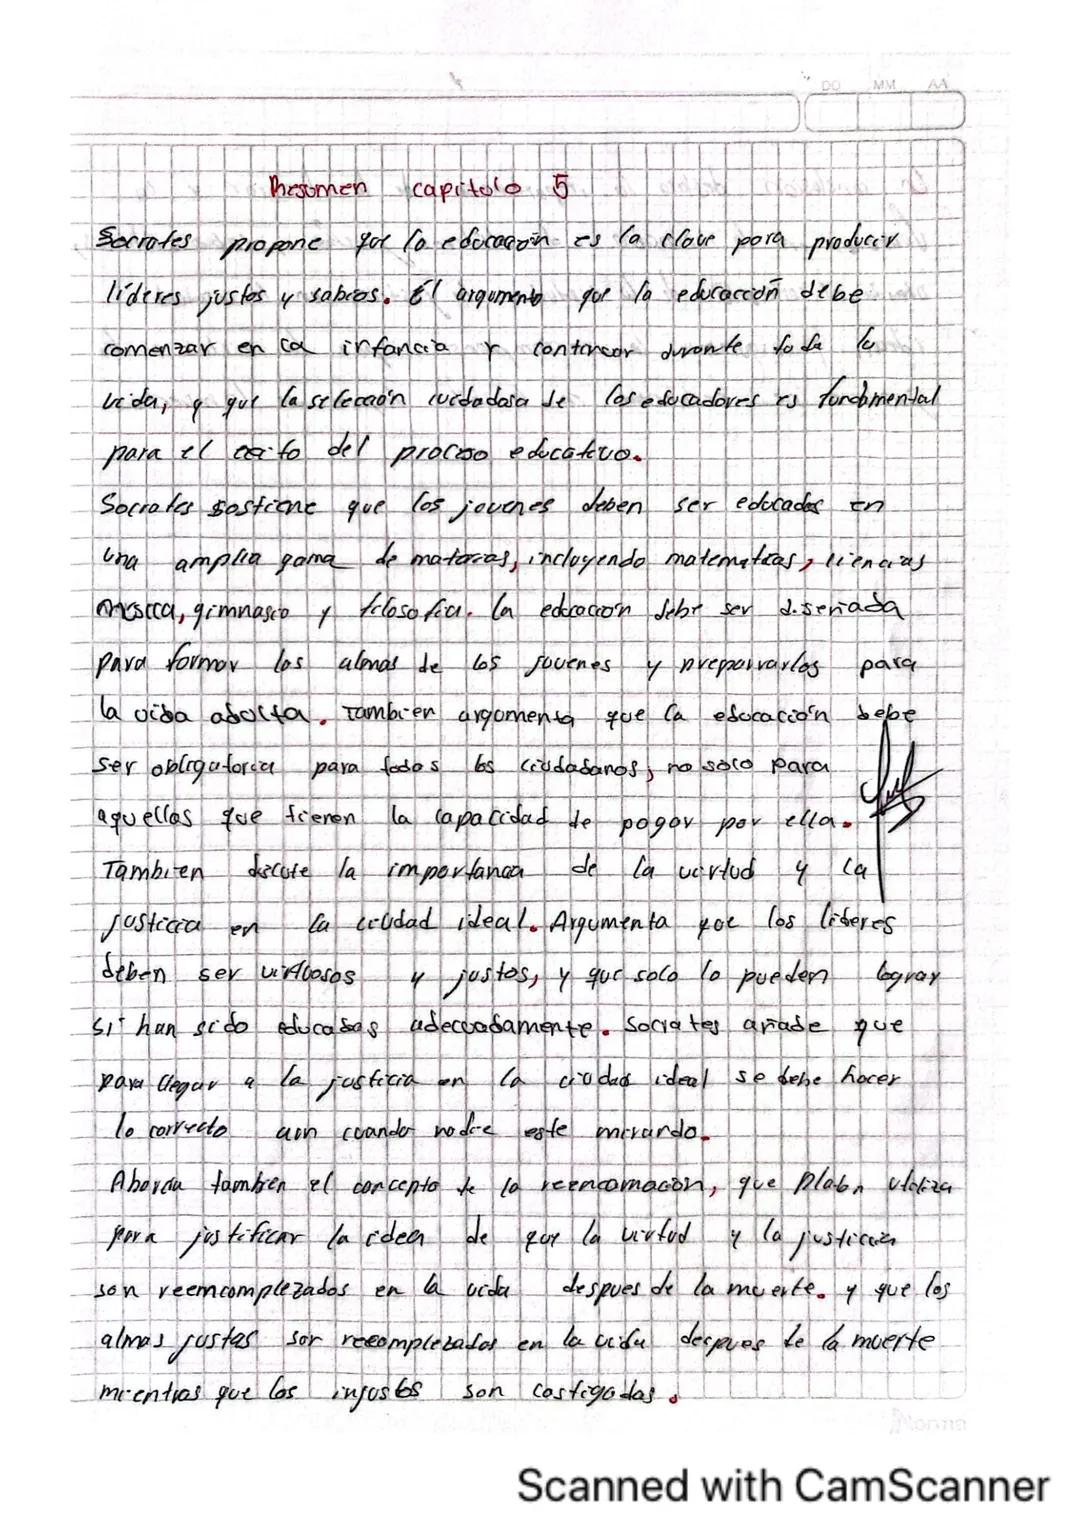 DD MM AA
Resumen capitulo 5
Socrates propone que la educación es la clave para producir
líderes justos y sabios. El argumento que la educacción debe
comenzar en la infancia y continuar durante toda la
vida, y que la selección cuidadosa de los educadores es fundamental
para el exito del proceso educativo.
Socrates sostiene que los jovenes deben ser educados en
una amplia gama de materias, incluyendo matematicas, ciencias
musica, gimnasio y filosofia. la educacion debe ser diseñada
para formar las almas de los jovenes y prepararlos para
la vida adulta. Tambien argumenta que la educación debe
ser obligatoria para todos los ciudadanos, no solo para
aquellos que tienen la capacidad de pagar por ella.
Tambien discute la importancia de la virtud y la
justicia en la ciudad ideal. Argumenta que los lideres
deben ser virtuosos y justos, y que solo lo pueden lograr
si han sido educados adecuadamente. Socrates añade que
para llegar a la justicia en la ciudad ideal se debe hacer
lo correcto aun cuando nadie este mirando.
Aborda tambien el concepto de la reencarnacion, que Platon utiliza
para justificar la idea de que la virtud y la justicia
son reemcomplezados en la vida despues de la muerte. y que las
almas justas son recomplezadas en la vida despues de la muerte
mientras que los injustos son castigadas.
Norma
Scanned with CamScanner